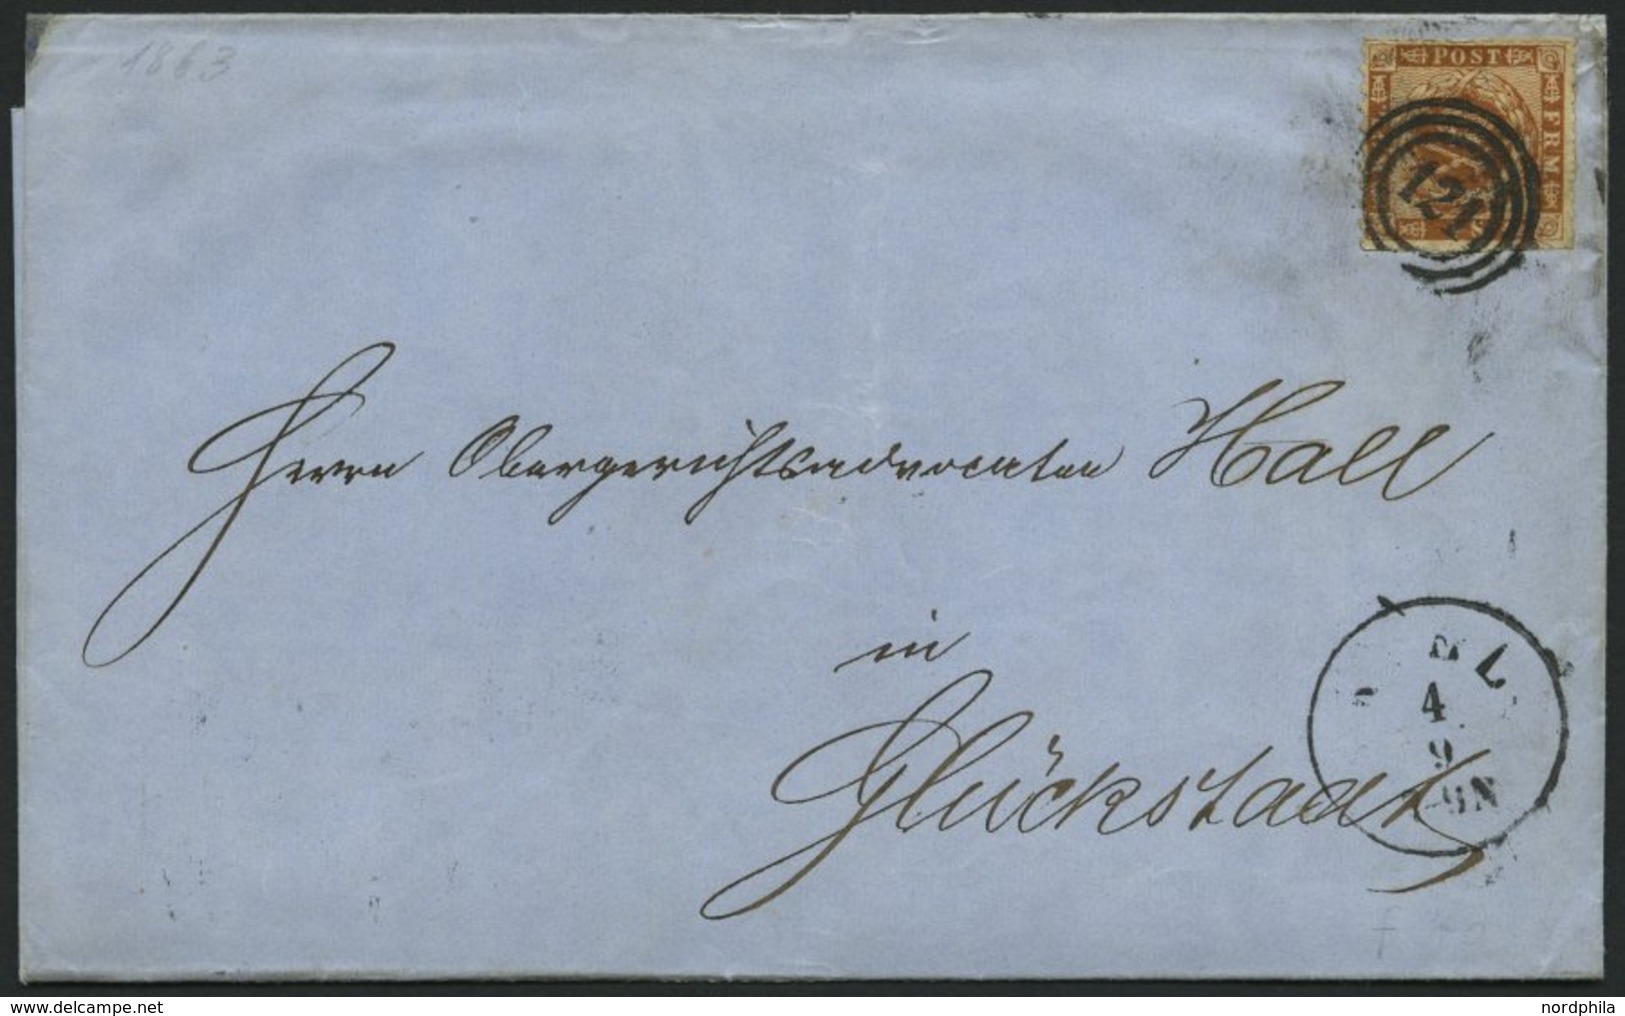 1863
POST
FRM
121
Herrn Obergerichtsadvocaten Hall
in
Glückstadt
4
9
www.delcampe.net
nordphila